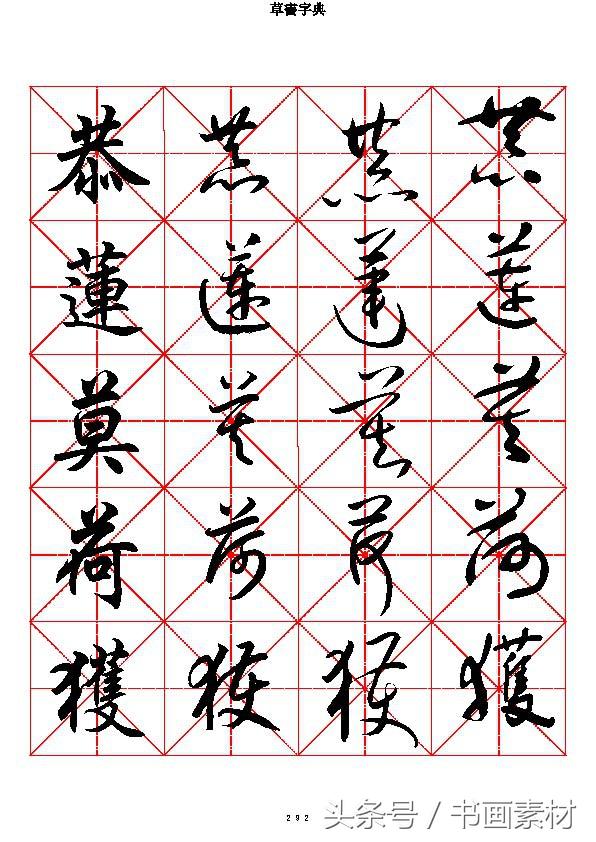 草書字典
恭 恭 恭 恭
蓮 蓮 蓮 蓮
莫 莫 莫 莫
荷 荷 荷 荷
獲 獲 獲 獲
292
头条号 / 书画素材